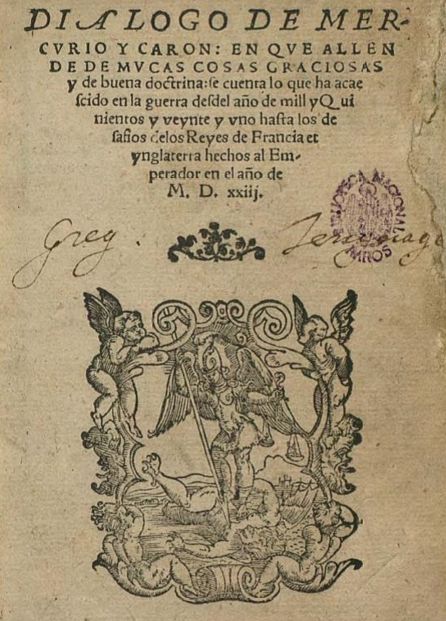 DIALOGO DE MER-
CVRIO Y CARON: EN QVE ALLEN
DE DE MVCAS COSAS GRACIOSAS
y de buena doctrina: se cuenta lo que ha acae
scido en la guerra desdel año de mill y Qui
nientos y veynte y vno hasta los de
safios delos Reyes de Francia et
ynglaterra hechos al Em-
perador en el año de
M. D. xxiij.
Greg.
BIBLIOTECA NACIONAL